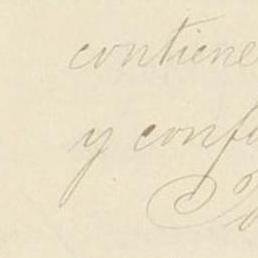 contiene
y conf